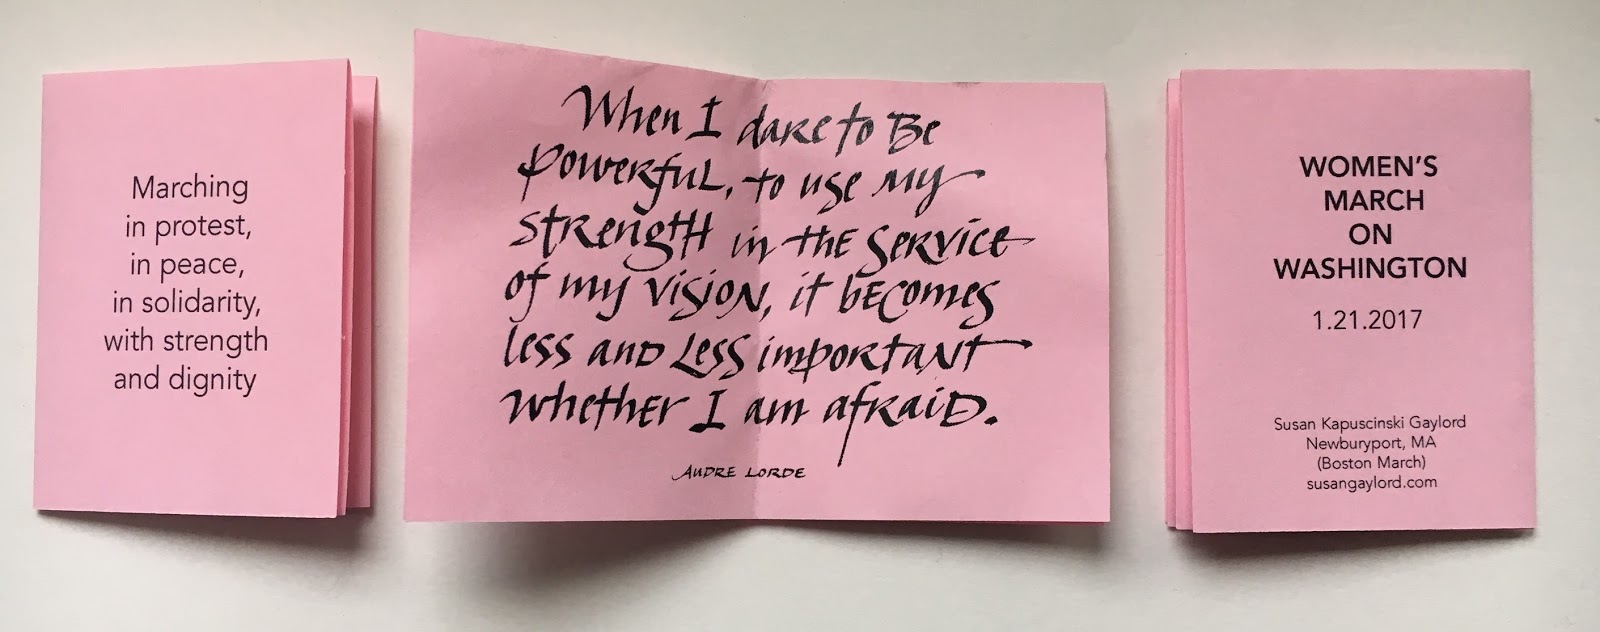 Marching
in protest,
in peace,
in solidarity,
with strength
and dignity
When I dare to Be
powerful, to use my
strength in the service
of my vision, it becomes
less and less important
whether I am afraid.
AUDRE LORDE
WOMEN'S
MARCH
ON
WASHINGTON
1.21.2017
Susan Kapuscinski Gaylord
Newburyport, MA
(Boston March)
susangaylord.com